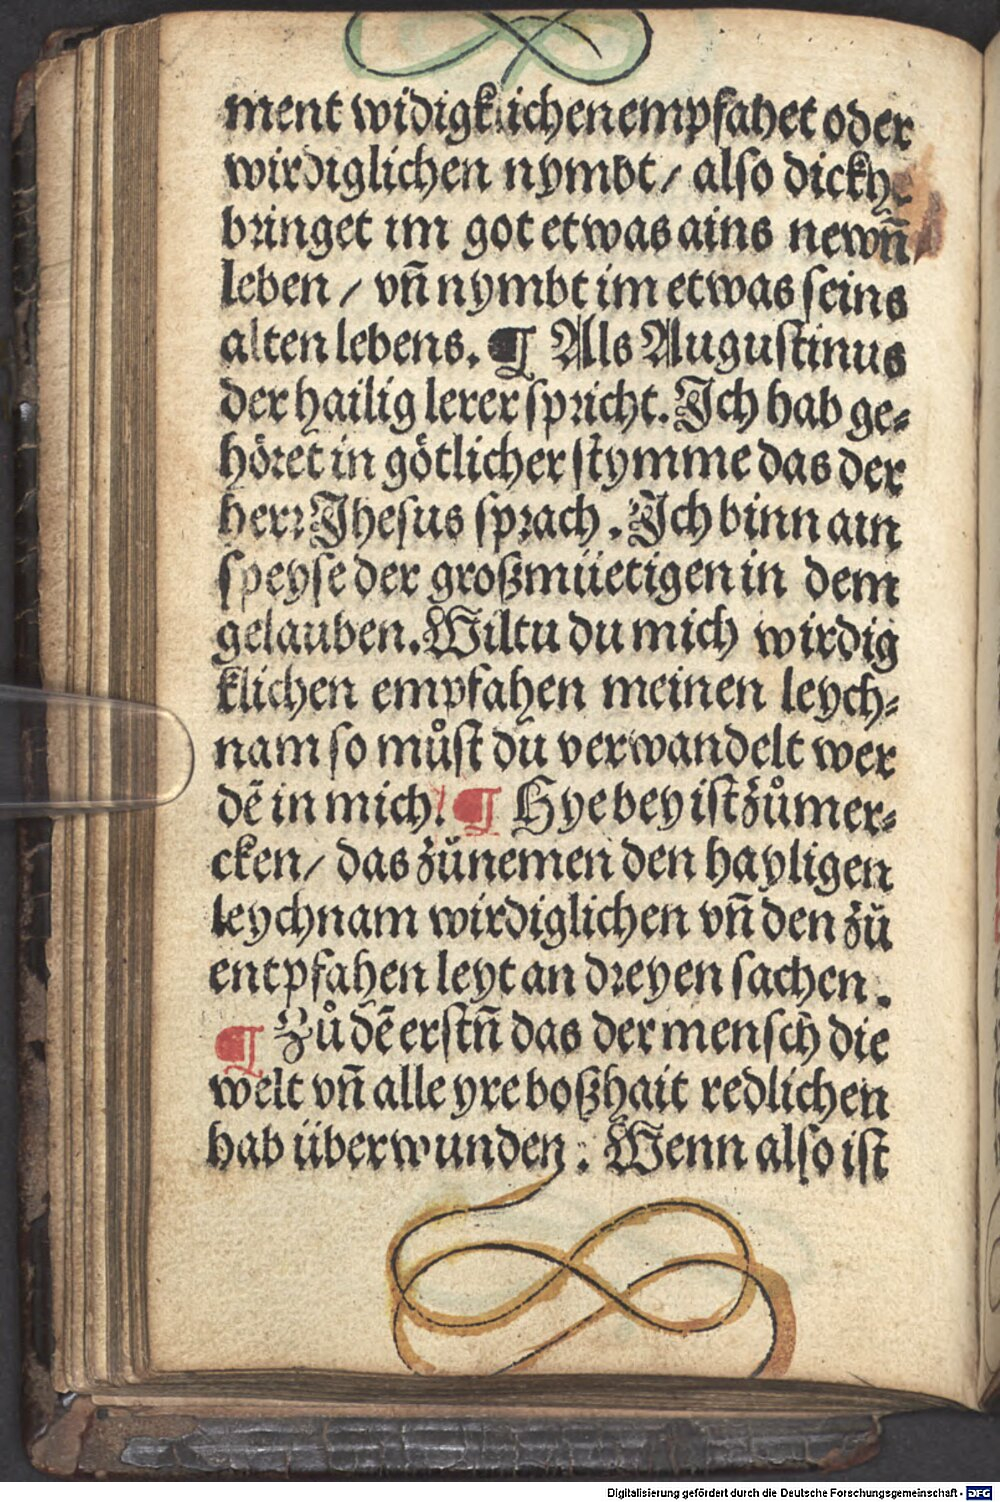 ment widigklichen empfahet oder
wirdiglichen nymbt / also dickhe
bringet im got etwas ains newn̄
leben / vn̄ nymbt im etwas seins
alten lebens. ¶ Als Augustinus
der hailig lerer spricht. Ich hab ge⸗
höret in götlicher stymme das der
herr Jhesus sprach. Ich binn ain
speyse der großmüetigen in dem
gelauben. Wiltu du mich wirdig
klichen empfahen meinen leych⸗
nam so můst du verwandelt wer
dē in mich. ¶ Hye bey ist zůmer⸗
cken / das zůnemen den hayligen
leychnam wirdiglichen vn̄ den zů
entpfahen leyt an dreyen sachen.
¶ Zů dē erstn̄ das der mensch die
welt vn̄ alle yre boßhait redlichen
hab überwunden. Wenn also ist
Digitalisierung gefördert durch die Deutsche Forschungsgemeinschaft - DFG